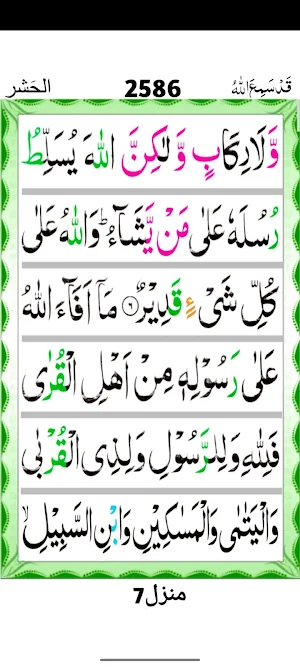 قَدْ سَمِعَ اللّٰهُ 2586 الحَشر
وَّلَا رِكَابٍ وَّلٰكِنَّ اللّٰهَ يُسَلِّطُ
رُسُلَهٗ عَلٰى مَنْ يَّشَآءُ ؕ وَاللّٰهُ عَلٰى
كُلِّ شَىْءٍ قَدِيْرٌ ۝۶ مَاۤ اَفَآءَ اللّٰهُ
عَلٰى رَسُوْلِهٖ مِنْ اَهْلِ الْقُرٰى
فَلِلّٰهِ وَلِلرَّسُوْلِ وَلِذِى الْقُرْبٰى
وَالْيَتٰمٰى وَالْمَسٰكِيْنِ وَابْنِ السَّبِيْلِ ۙ
منزل7